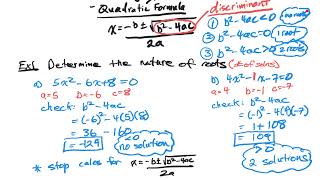 Quadratic Formula
x = -b ± √b²-4ac
2a
discriminant
① b²-4ac<0 no roots
② b²-4ac=0 1 root
③ b²-4ac>0 2 roots
Ex1 Determine the nature of roots (# of solns)
a) 5x²-6x+8=0
a=5 b=-6 c=8
check: b²-4ac
=(-6)²-4(5)(8)
= 36 - 160
= -124
no solution
* stop calcs for x = -b±√b²-4ac
2a
b) 4x²-1x-7=0
a=4 b=-1 c=-7
check: b²-4ac
=(-1)²-4(4)(-7)
= 1+108
= 109
>0
2 solutions